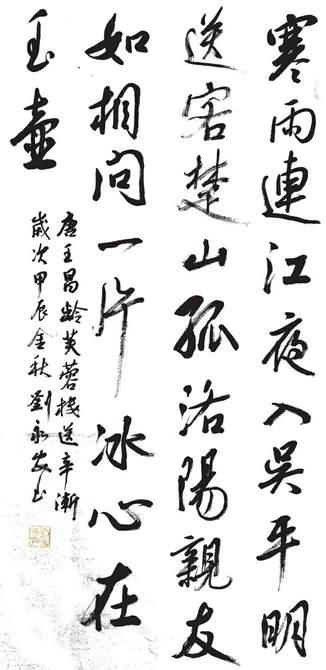 寒雨連江夜入吳平明
送客楚山孤洛陽親友
如相问一片冰心在
玉壺
唐王昌龄芙蓉楼送辛漸
歲次甲辰金秋劉永